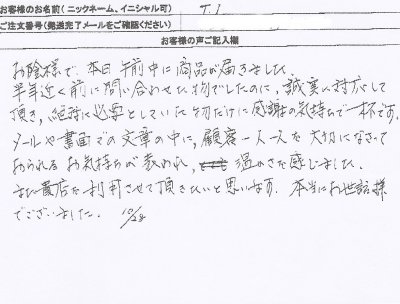 お客様のお名前（ニックネーム、イニシャル可） T.I
ご注文番号（発送完了メールをご確認ください）
お客様の声ご記入欄
お陰様で、本日午前中に商品が届きました。
半年近く前に問い合わせた物でしたのに、誠実に対応して
頂き、絶対に必要としていた物だけに感謝の気持ちで一杯です。
メールや書面での文章の中に、顧客一人一人を大切になさって
おられるお気持ちが表われ、温かさを感じました。
また貴店を利用させて頂きたいと思います。本当にお世話様
でございました。 10/28